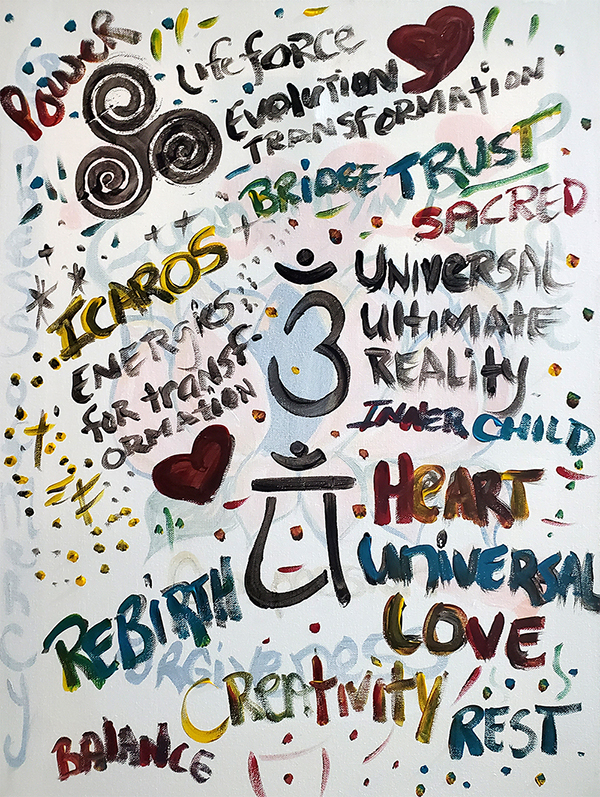 Power
Lifeforce
Evolution
TRANSFORMATION
BRIDGE TRUST
SACRED
ICAROS
ENERGIES
for transf-
ORMATION
UNIVERSAL
ULTIMATE
REALITY
INNER CHILD
HEART
UNIVERSAL
LOVE
REBIRTH
Forgiveness
CREATIVITY
REST
BALANCE